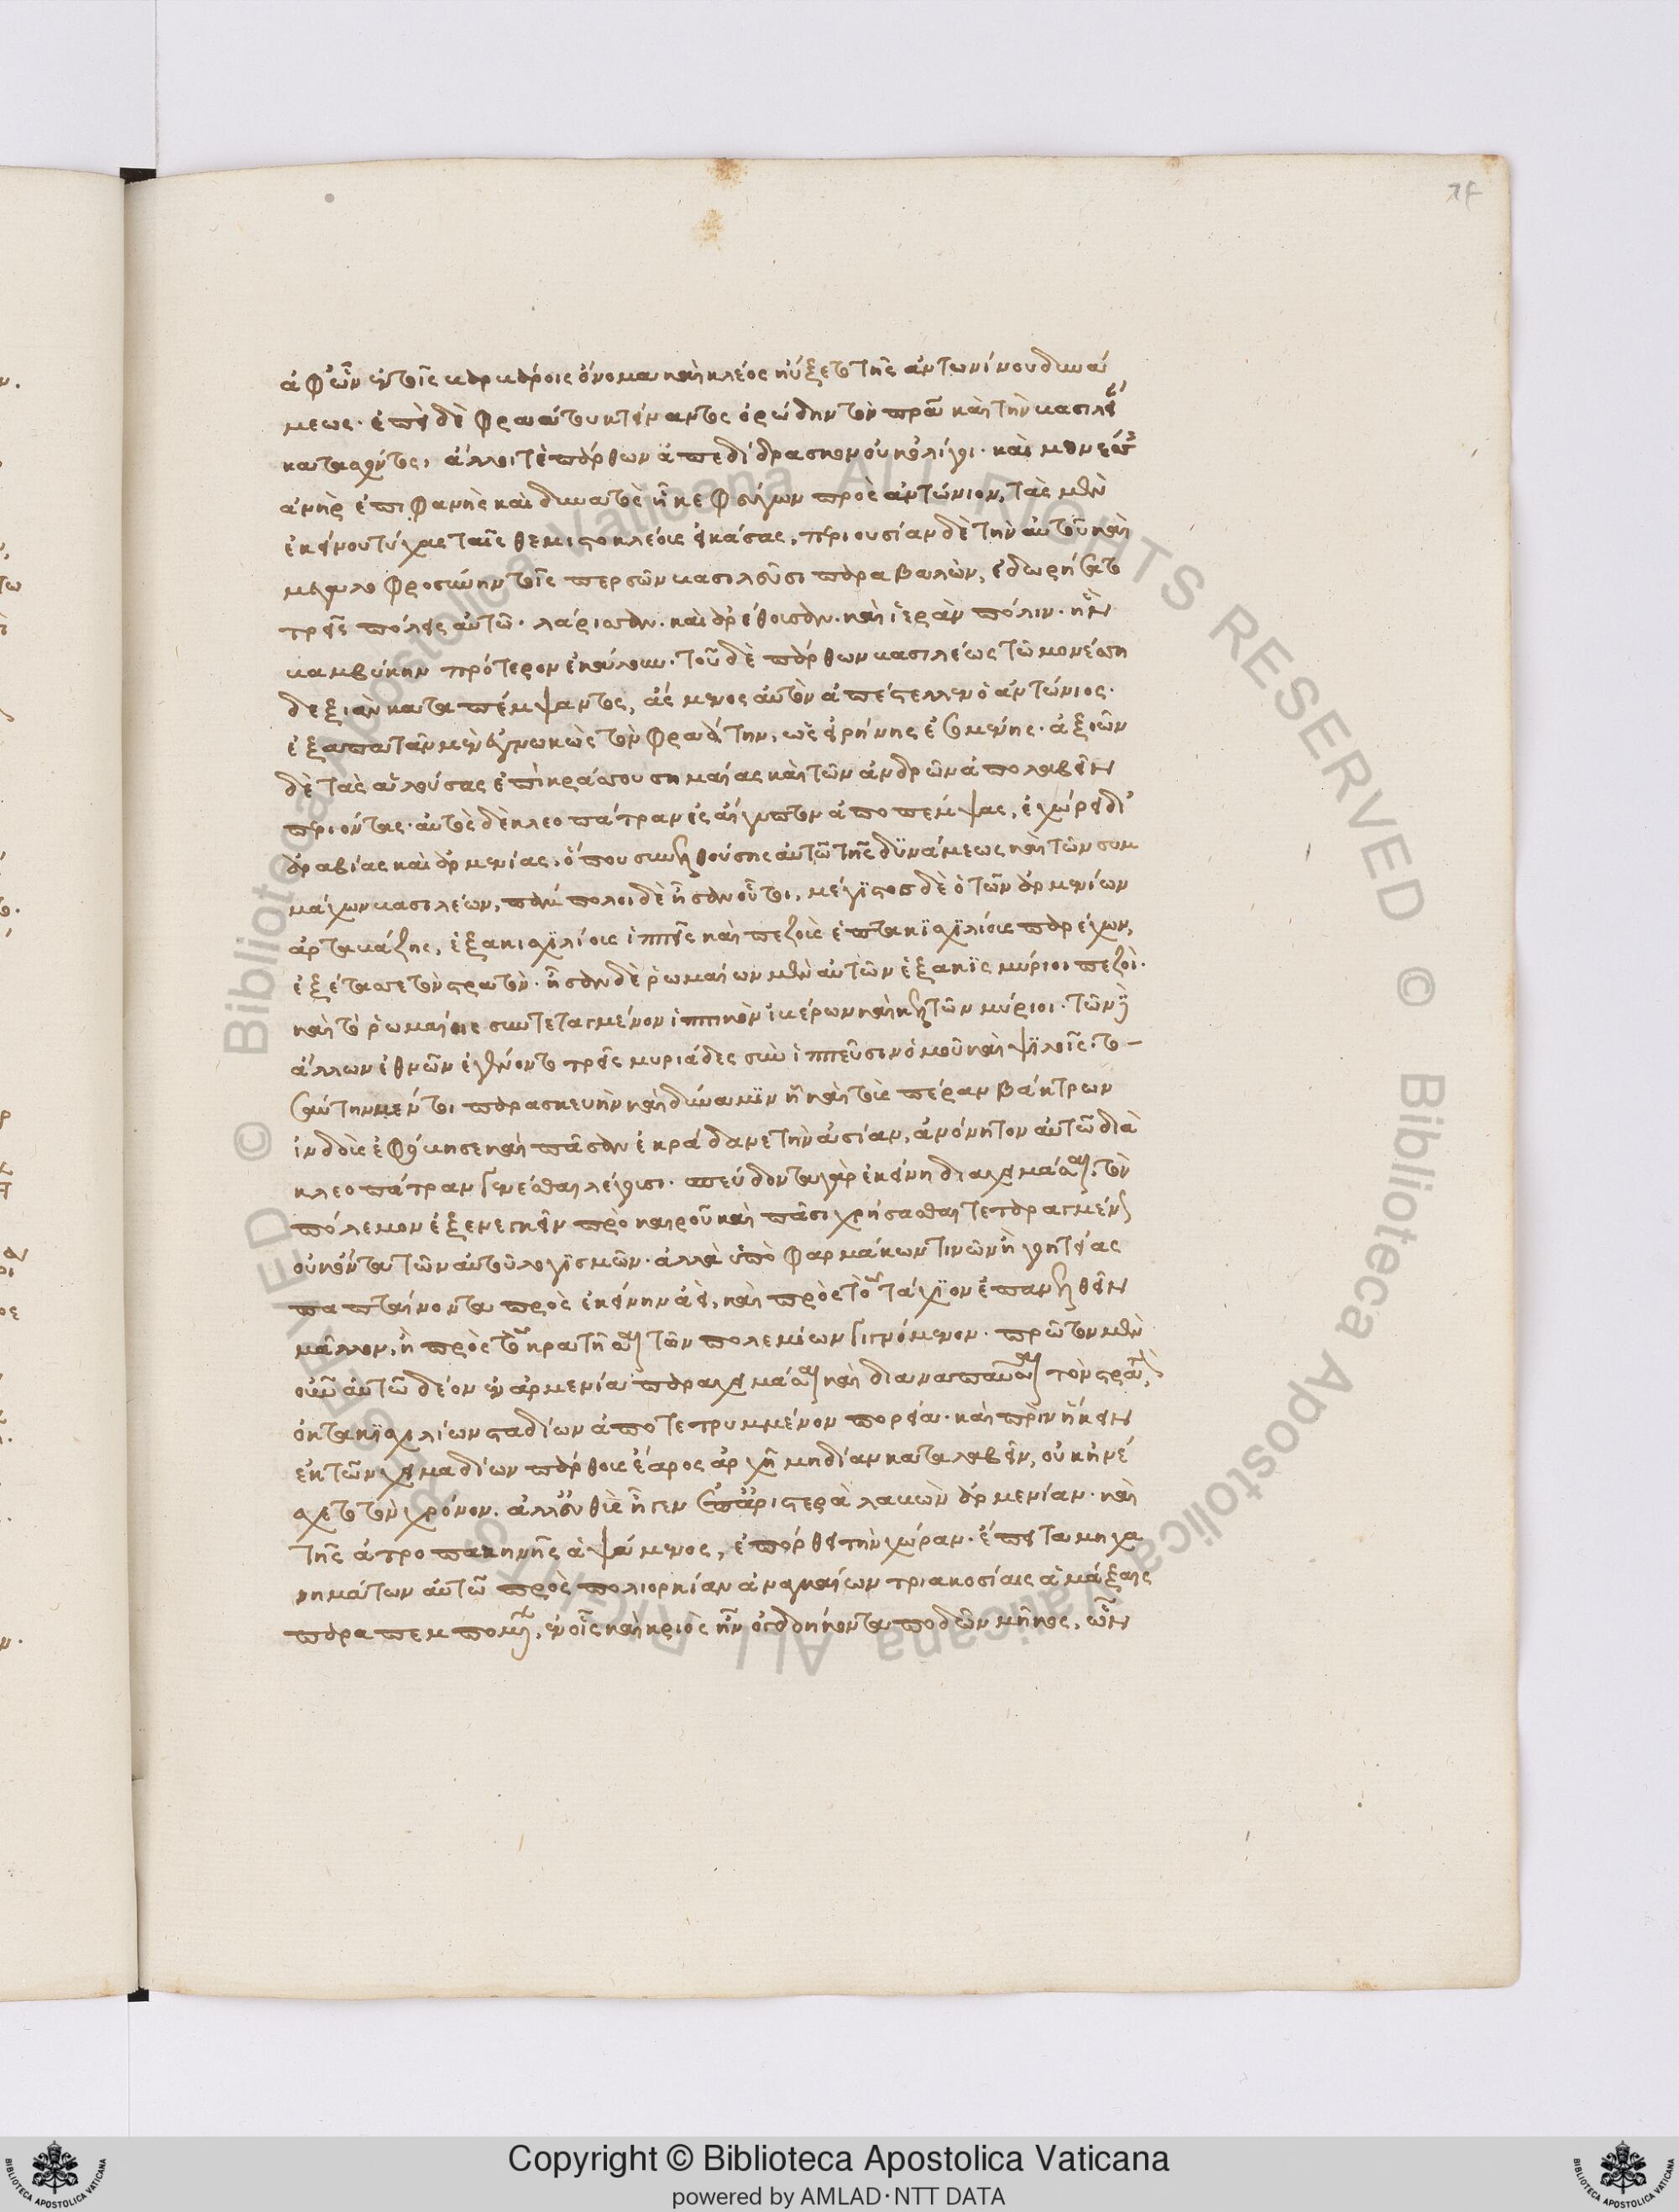 ἀφ' ὧν ἐν τοῖς βαρβάροις ὄνομα καὶ κλέος ηὔξετο τῆς ἀντωνίνου δυνά
μεως. ἐπεὶ δὲ φραάτου κτείναντος ὀρώδην τὸν πρα καὶ τὴν βασιλεί
κατασχόντος, ἄλλοι τε πάρθων ἀπεδίδρασκον οὐκ ὀλίγοι. καὶ μονέσης
ἀνὴρ ἐπιφανὴς καὶ δυνατὸς ἧκε φεύγων πρὸς ἀντώνιον, τὰς μὲν
ἐκείνου τύχας ταῖς θεμιστοκλέοις εἰκάσας, περιουσίαν δὲ τὴν αὐτοῦ καὶ
μεγαλοφροσύνην τοῖς περσῶν βασιλεῦσι παραβαλὼν, ἐδωρήσατο
τρεῖς πόλεις αὐτῷ. λάρισσαν. καὶ ἀρέθουσαν. καὶ ἱερὰν πόλιν. ἣν
βαμβύκην πρότερον ἐκάλουν. τοῦ δὲ πάρθων βασιλέως τῷ μονέση
δεξιὰν καταπέμψαντος, ἄσμενος αὐτὸν ἀπέστελλεν ὁ ἀντώνιος.
ἐξαπατᾶν μὲν ἐγνωκὼς τὸν φραάτην, ὡς εἰρήνης ἐσομένης. ἀξιῶν
δὲ τὰς ἁλούσας ἐπὶ κράσσου σημαίας καὶ τῶν ἀνδρῶν ἀπολαβεῖν
περιόντας. αὐτὸς δὲ κλεοπάτραν εἰς αἴγυπτον ἀποπέμψας, ἐχώρει δι'
ἀραβίας καὶ ἀρμενίας. ὅπου συνελθούσης αὐτῷ τῆς δυνάμεως καὶ τῶν συμ
μάχων βασιλέων, πάμπολοι δὲ ἦσαν οὗτοι, μέγιστος δὲ ὁ τῶν ἀρμενίων
ἀρταβάζης, ἑξακισχιλίους ἱππεῖς καὶ πεζοὺς ἑπτακισχιλίους παρέχων,
ἐξέτασε τὸν στρατόν. ἦσαν δὲ ῥωμαίων μὲν αὐτῶν ἑξακισμύριοι πεζοί.
καὶ τὸ ῥωμαίοις συντεταγμένον ἱππικὸν ἰβέρων καὶ κελτῶν μύριοι. τῶν δ
ἄλλων ἐθνῶν ἐγένοντο τρεῖς μυριάδες σὺν ἱππεῦσιν ὁμοῦ καὶ ψιλοῖς. το
σαύτην μέντοι παρασκευὴν καὶ δύναμιν ἣ καὶ τοὺς πέραν βάκτρων
ἰνδοὺς ἐφόβησε καὶ πᾶσαν ἐκράδανε τὴν ἀσίαν, ἀνόνητον αὐτῷ διὰ
κλεοπάτραν γενέσθαι λέγουσι. σπεύδοντα γὰρ ἐκείνῃ διαχειμάσαι, τὸν
πόλεμον ἐξενεγκεῖν πρὸ καιροῦ καὶ πᾶσι χρήσασθαι τεταραγμένως
οὐκ ὄντα τῶν αὐτοῦ λογισμῶν. ἀλλὰ ὑπὸ φαρμάκων τινῶν ἢ γοητείας
παπταίνοντα πρὸς ἐκείνην ἀεὶ, καὶ πρὸς τὸ τάχιον ἐπανελθεῖν
μᾶλλον, ἢ πρὸς τὸ κρατῆσαι τῶν πολεμίων γιγνόμενον. πρῶτον μὲν
οὖν αὐτῷ δέον ἐν ἀρμενίᾳ παραχειμάσαι καὶ διαναπαῦσαι τὸν στρατὸν,
ὀκτακισχιλίων σταδίων ἀποτετρυμμένον πορείᾳ. καὶ πρὶν ἥκειν
ἐκ τῶν χειμαδίων πάρθους ἔαρος ἀρχῇ μηδίαν καταλαβεῖν, οὐκ ἠνέ
σχετο τὸν χρόνον. ἀλλ' εὐθὺς ἦγεν ἐπ' ἀριστερὰ λαβὼν ἀρμενίαν. καὶ
τῆς ἀτροπακηνῆς ἁψάμενος, ἐπόρθει τὴν χώραν. ἔπειτα μηχα
νημάτων αὐτῷ πρὸς πολιορκίαν ἀναγκαίων τριακοσίαις ἁμάξαις
παραπεμπομένων, ἐν οἷς καὶ κριὸς ἦν ὀγδοήκοντα ποδῶν μῆκος, ὧν